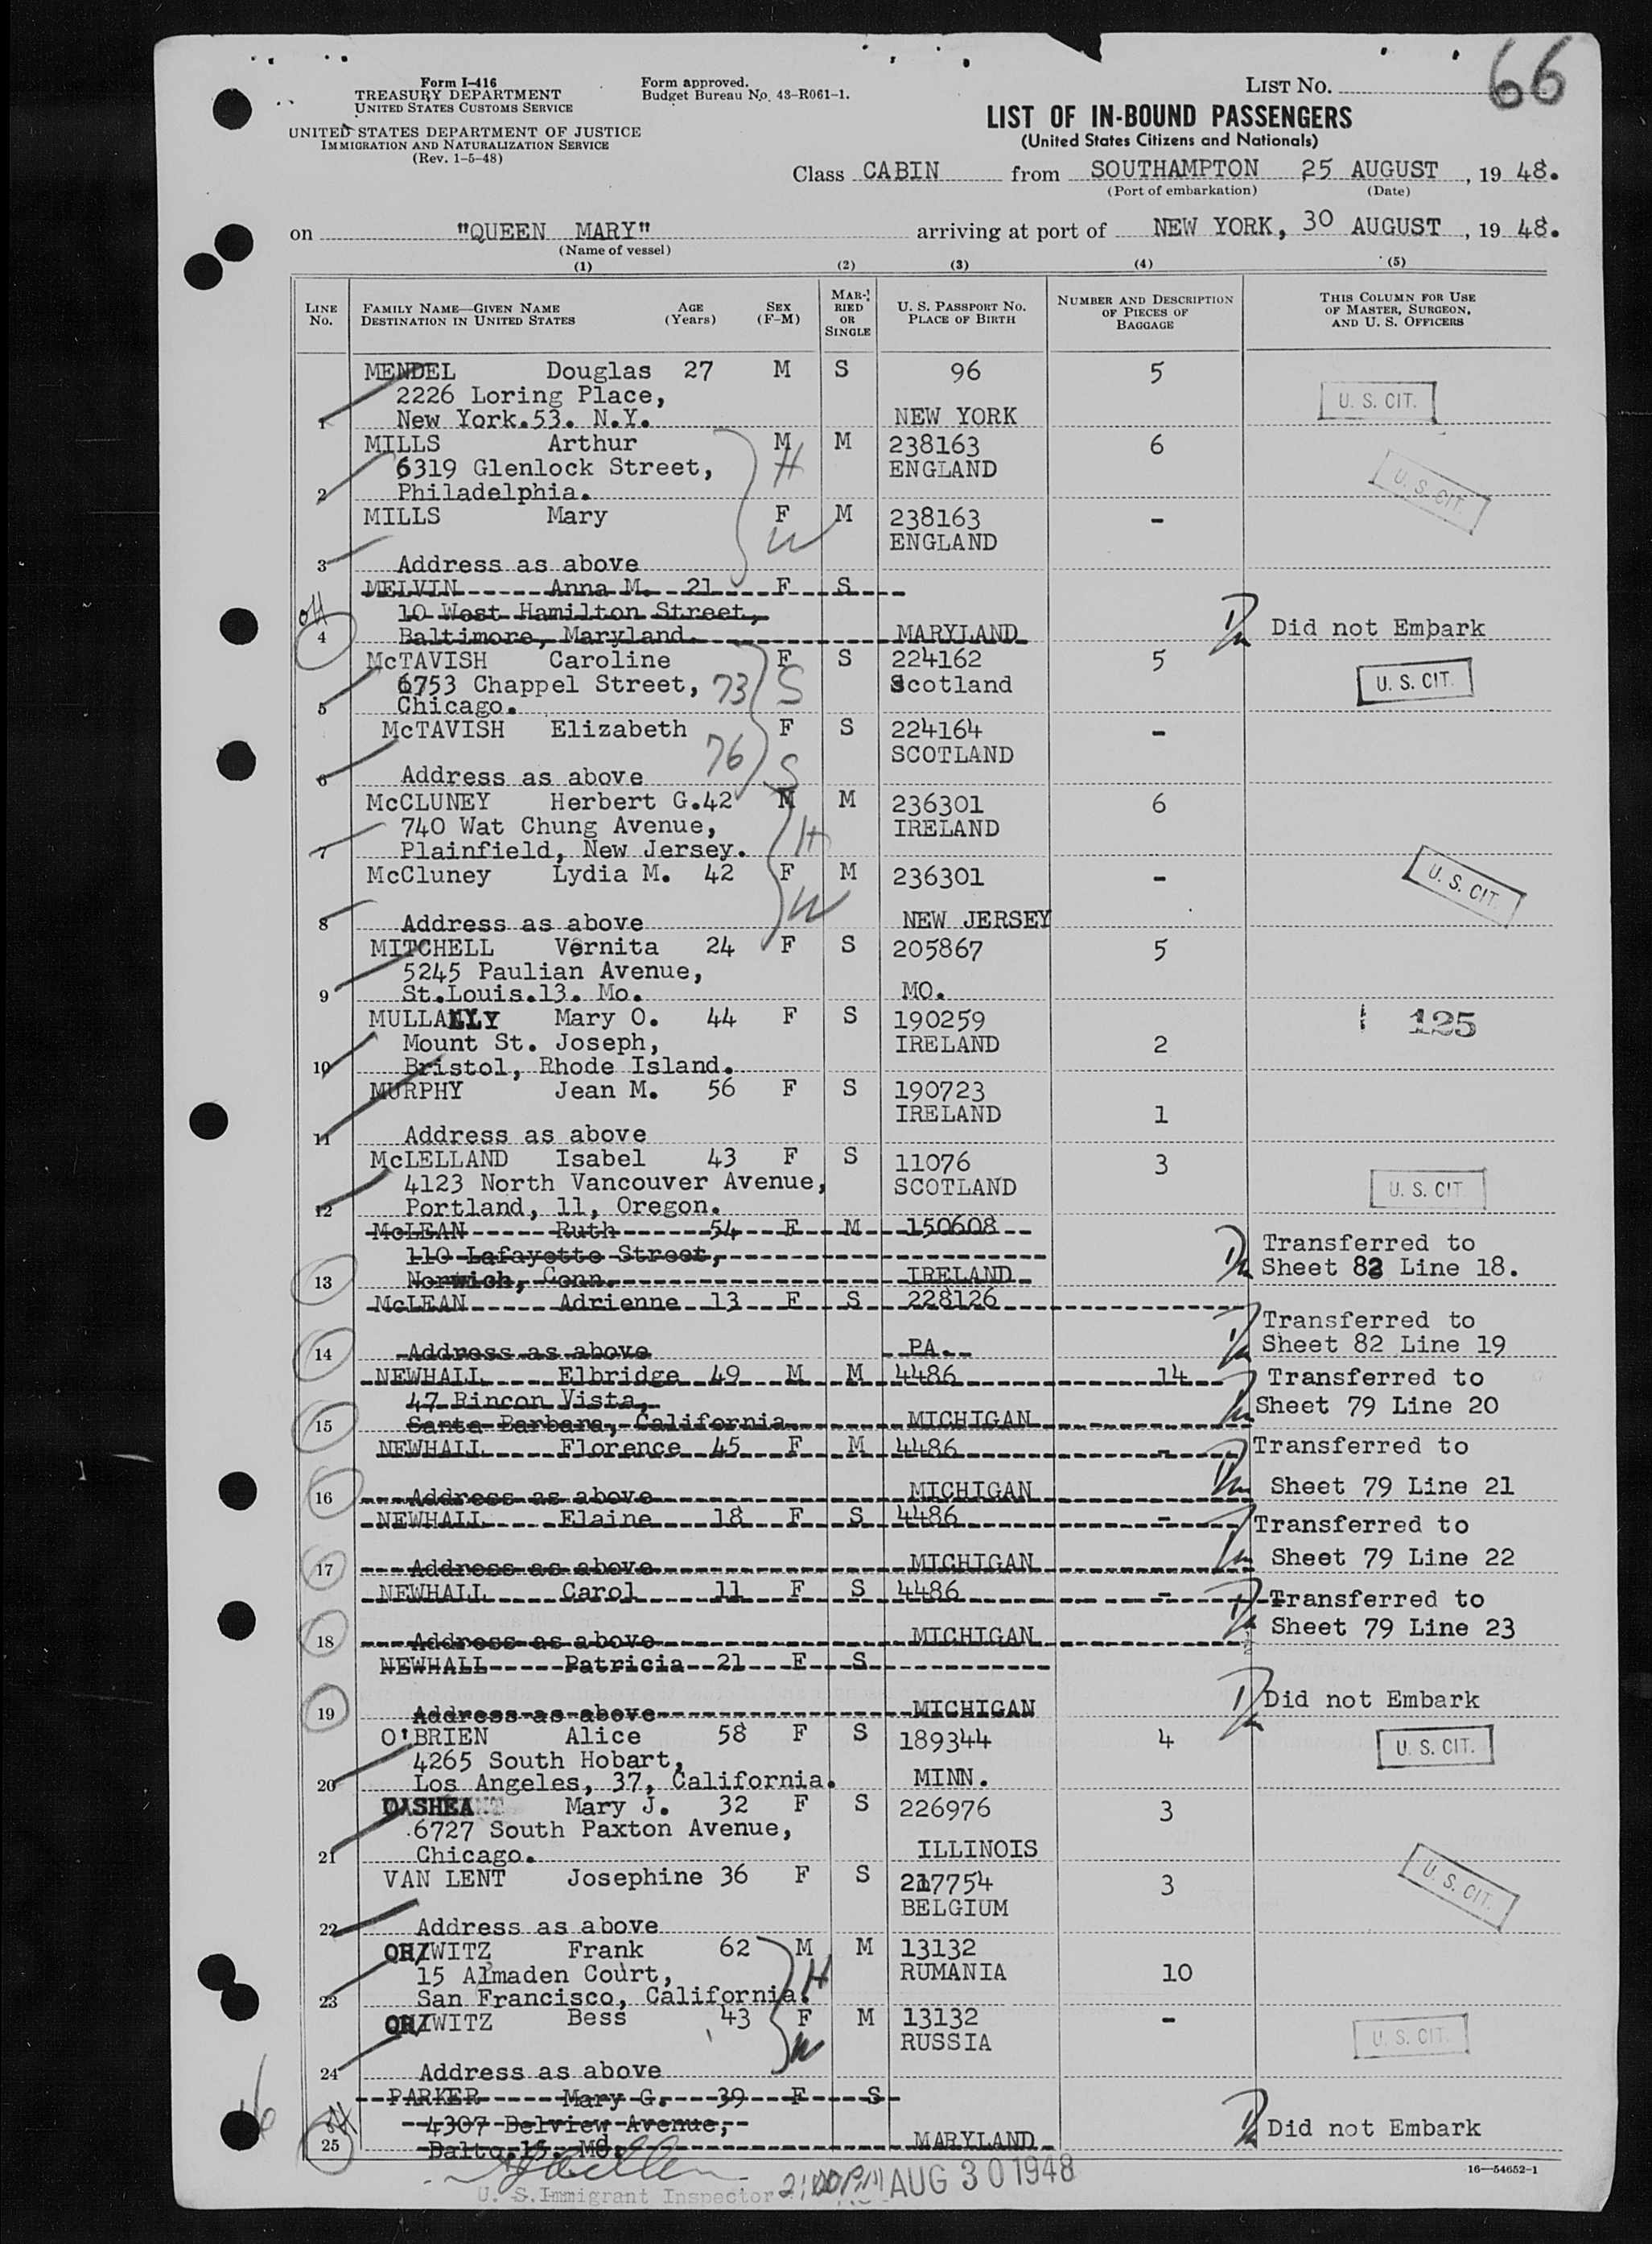 66
Form I-416
TREASURY DEPARTMENT
UNITED STATES CUSTOMS SERVICE
UNITED STATES DEPARTMENT OF JUSTICE
IMMIGRATION AND NATURALIZATION SERVICE
(Rev. 1-5-48)
Form approved.
Budget Bureau No. 43-R061-1.
LIST NO.
LIST OF IN-BOUND PASSENGERS
(United States Citizens and Nationals)
Class CABIN from SOUTHAMPTON 25 AUGUST, 19 48.
(Port of embarkation) (Date)
on "QUEEN MARY" arriving at port of NEW YORK, 30 AUGUST, 19 48.
(Name of vessel)
(1) (2) (3) (4) (5)
LINE NO.
FAMILY NAME—GIVEN NAME
DESTINATION IN UNITED STATES
AGE (Years)
SEX (F-M)
MARRIED OR SINGLE
U. S. PASSPORT NO.
PLACE OF BIRTH
NUMBER AND DESCRIPTION OF PIECES OF BAGGAGE
THIS COLUMN FOR USE OF MASTER, SURGEON, AND U. S. OFFICERS
MENDEL Douglas 27 M S 96 5
2226 Loring Place, U. S. CIT.
1 New York.53. N.Y. NEW YORK
MILLS Arthur M M 238163 6
6319 Glenlock Street, H ENGLAND
2 Philadelphia. U. S. CIT.
MILLS Mary F M 238163 -
W ENGLAND
3 Address as above
MELVIN Anna M. 21 F S
off 10 West Hamilton Street,
4 Baltimore, Maryland. MARYLAND Did not Embark
McTAVISH Caroline F S 224162 5
6753 Chappel Street, 73 S Scotland U. S. CIT.
5 Chicago.
McTAVISH Elizabeth F S 224164 -
76 S SCOTLAND
6 Address as above
McCLUNEY Herbert G. 42 M M 236301 6
740 Wat Chung Avenue, H IRELAND
7 Plainfield, New Jersey.
McCluney Lydia M. 42 F M 236301 - U. S. CIT.
W
8 Address as above NEW JERSEY
MITCHELL Vernita 24 F S 205867 5
5245 Paulian Avenue,
9 St.Louis.13. Mo. MO.
MULLALLY Mary O. 44 F S 190259 125
Mount St. Joseph, IRELAND 2
10 Bristol, Rhode Island.
MURPHY Jean M. 56 F S 190723
IRELAND 1
11 Address as above
McLELLAND Isabel 43 F S 11076 3
4123 North Vancouver Avenue, SCOTLAND U. S. CIT.
12 Portland, 11, Oregon.
McLEAN Ruth 54 F M 150608
110 Lafayette Street, Transferred to
13 Norwich, Conn. IRELAND Sheet 82 Line 18.
McLEAN Adrienne 13 F S 228126
Transferred to
14 Address as above PA. Sheet 82 Line 19
NEWHALL Elbridge 49 M M 4486 14 Transferred to
47 Rincon Vista, Sheet 79 Line 20
15 Santa Barbara, California MICHIGAN
NEWHALL Florence 45 F M 4486 - Transferred to
16 Address as above MICHIGAN Sheet 79 Line 21
NEWHALL Elaine 18 F S 4486 - Transferred to
17 Address as above MICHIGAN Sheet 79 Line 22
NEWHALL Carol 11 F S 4486 - Transferred to
18 Address as above MICHIGAN Sheet 79 Line 23
NEWHALL Patricia 21 F S
19 Address as above MICHIGAN Did not Embark
O'BRIEN Alice 58 F S 189344 4 U. S. CIT.
4265 South Hobart,
20 Los Angeles, 37, California. MINN.
Mary J. 32 F S 226976 3
6727 South Paxton Avenue,
21 Chicago. ILLINOIS
VAN LENT Josephine 36 F S 217754 3 U. S. CIT.
BELGIUM
22 Address as above
Frank 62 M M 13132
15 Almaden Court, H RUMANIA 10
23 San Francisco, California.
Bess 43 F M 13132 -
W RUSSIA U. S. CIT.
24 Address as above
PARKER Mary G. 39 F S
4307 Belview Avenue,
25 Balto.15. Md. MARYLAND Did not Embark
U. S. Immigrant Inspector 2:00 PM AUG 30 1948
16—54652-1